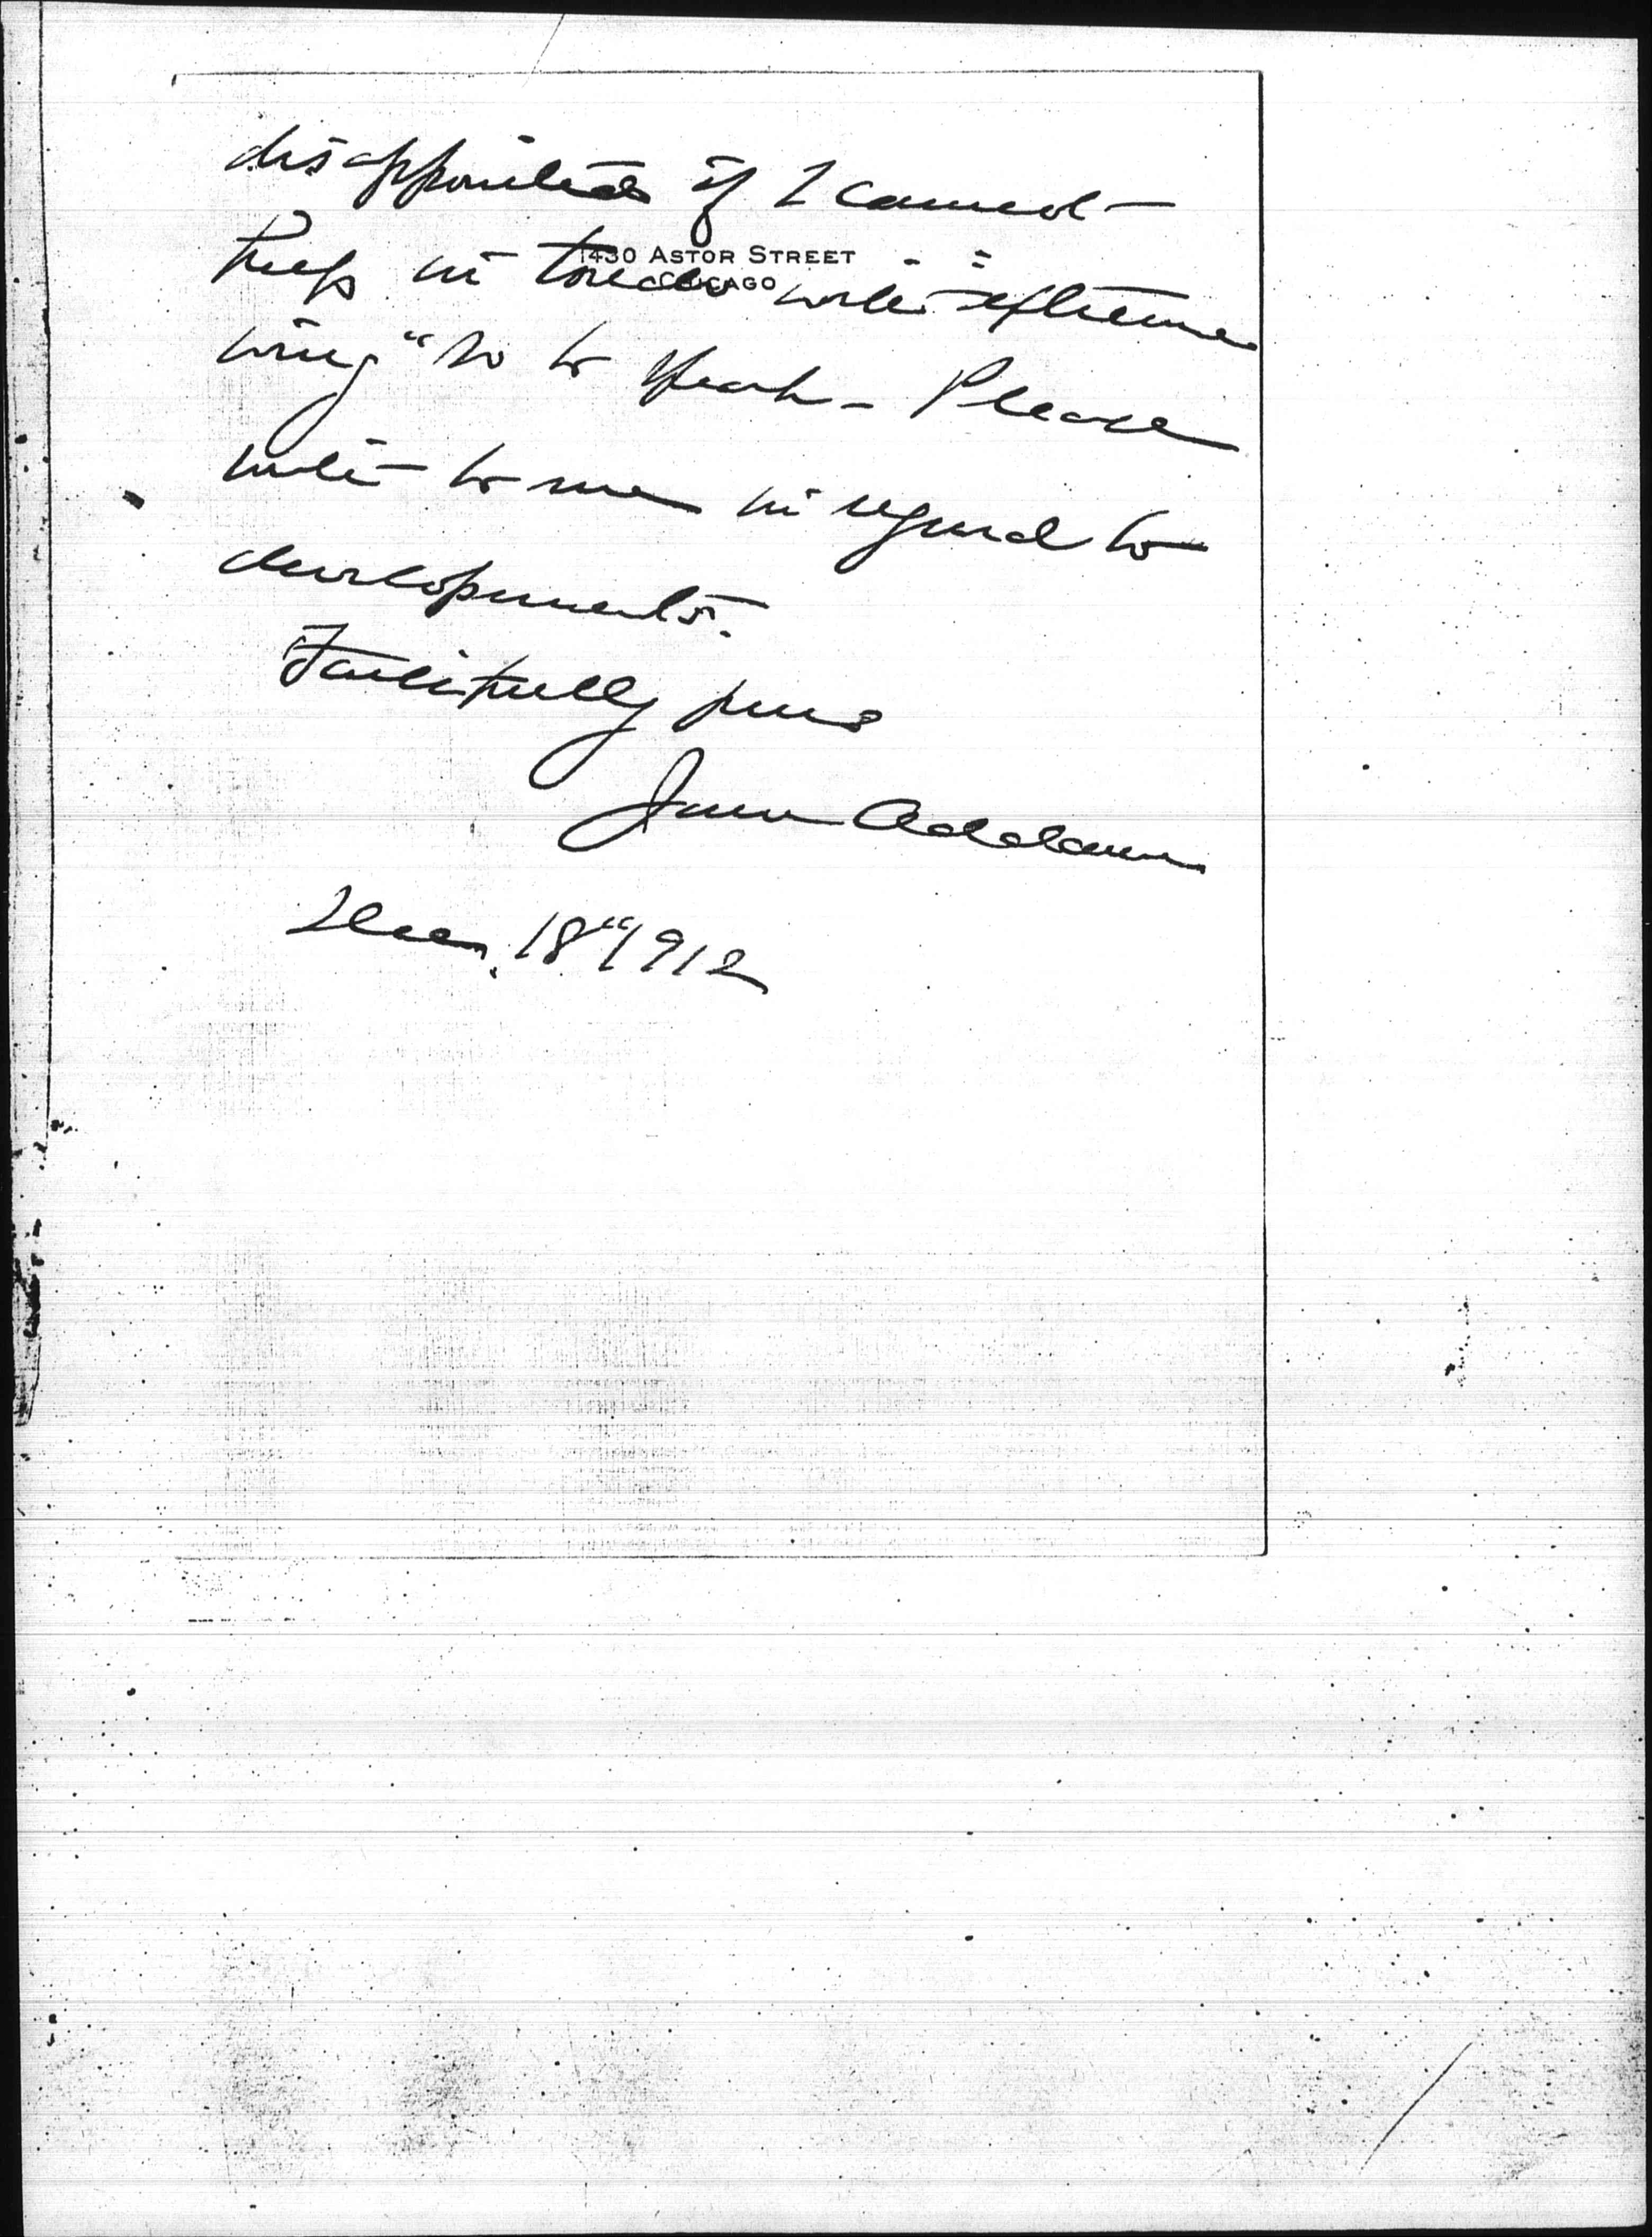 disappointed if I cannot
1430 ASTOR STREET
CHICAGO
keep in touch with "extreme
wing" so to speak – Please
write to me in regard to
developments.
Faithfully yours
Jane Addams
Dec. 18" 1912